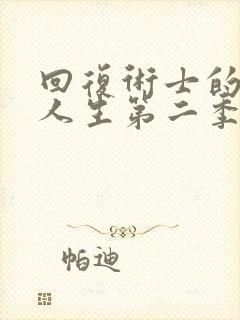 回復術士的
人生第二季
帕迪